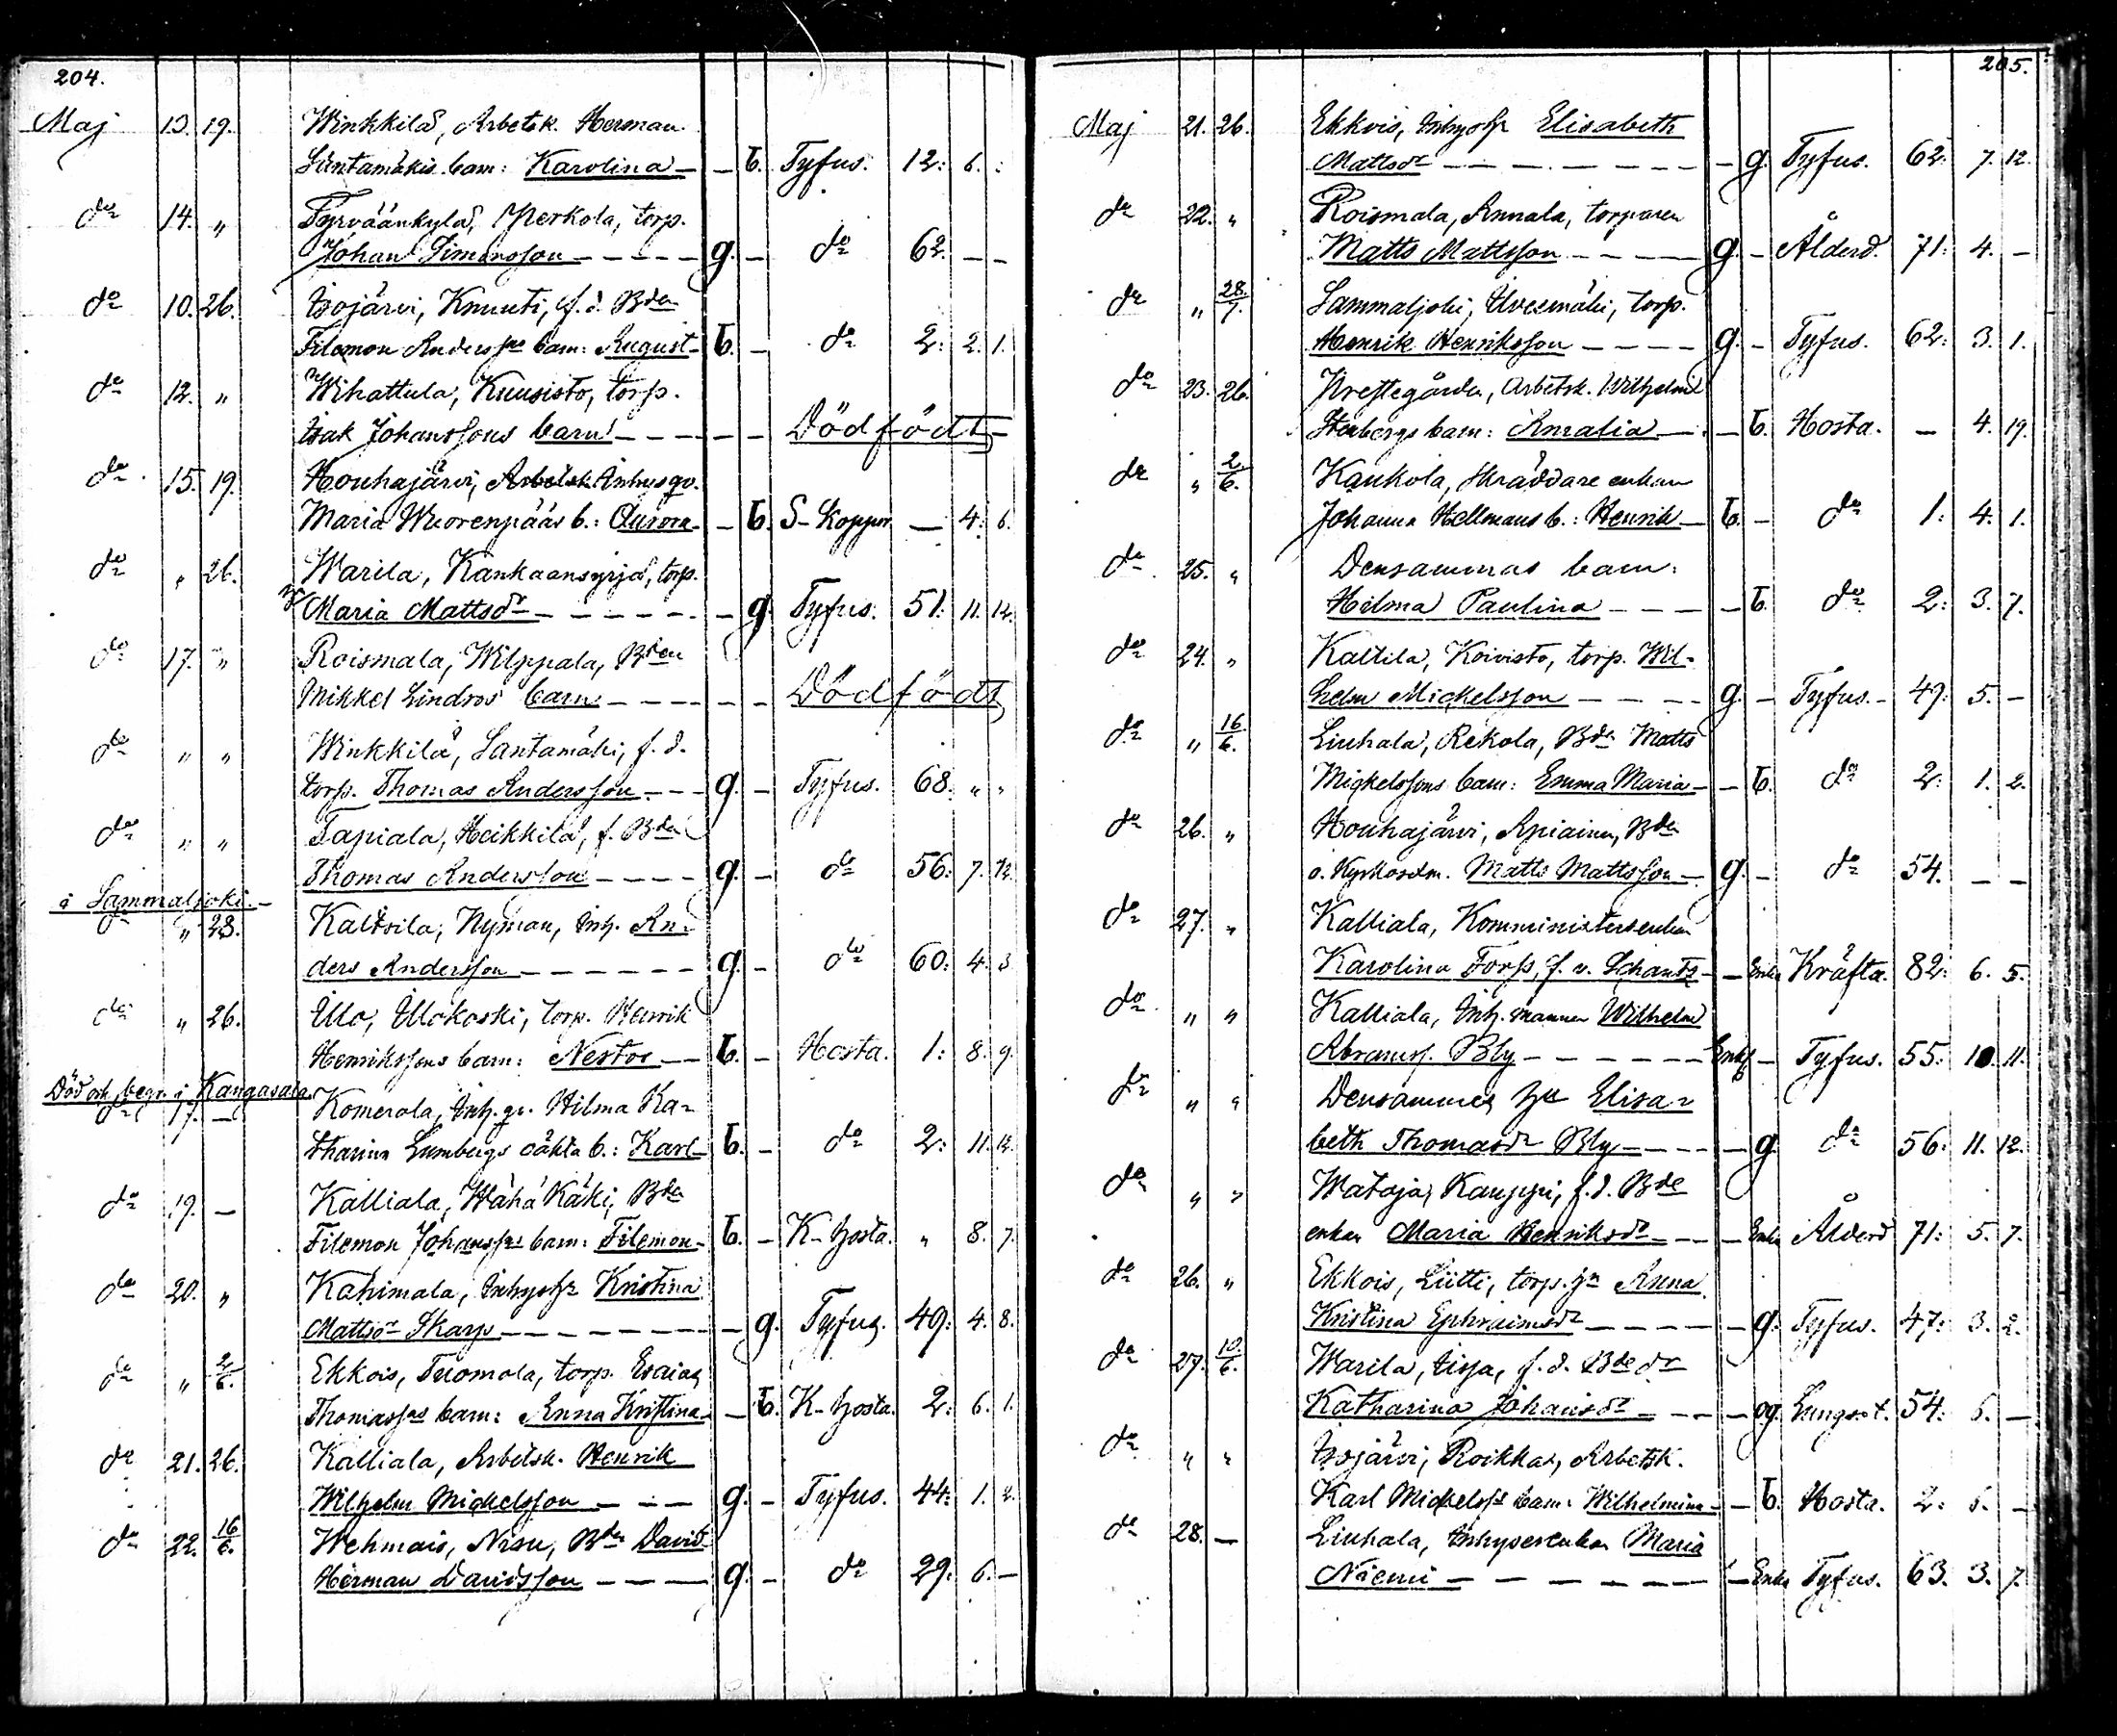 204.
Maj 13. 19. Winkkilä, Arbetsk. Herman
Santamäkis barn: Karolina — — b. Tyfus. 12: 6. :
do 14. „ Tyrväänkylä, Yperkola, torp.
Johan Simonsson — — — — — g. — do 62. — —
do 10. 26. Isojärvi, Knuuti, f. d. Bden
Filemon Anderssns barn: August — b. — do 2: 2. 1.
do 12. „ Wihattula, Kuusisto, torp.
Isak Johanssons barn — — — — — Dödfödt
do 15. 19. Houhajärvi, Inhysqv.
Maria Wuorenpääs b.: Aurora — — b. S-koppor — 4. 6.
do „ 26. Warila, Kankaansyrjä, torp.
Maria Mattsdr — — — — — — g. Tyfus. 51: 11. 12.
do 17. „ Roismala, Wilppala, Bden
Mikkel Lindros barn — — — — — Dödfödt
do „ „ Winkkilä, Santamäki, f. d.
torp. Thomas Andersson — — — g. — Tyfus. 68. „ „
do „ „ Tapiala, Heikkilä, f. Bden
Thomas Andersson — — — — g. — do 56: 7. 12.
i Sammaljoki. —
do „ 23. Kaltsila, Nyman, Inh. An-
ders Andersson — — — — — — g. — do 60: 4. 3
do „ 26. Illo, Illokoski, torp. Henrik
Henrikssons barn: Nestor — — b. — Hosta. 1: 8. 9.
Död och begr. i Kangasala.
do 17. — Komerola, Inh. qv. Hilma Ka-
tharina Lumbergs oäkta b.: Karl — b. — do 2: 11. 12.
do 19. — Kalliala, Wähä Käki, Bden
Filemon Johanssns barn: Filemon — b. — K-hosta. „ 8. 7.
do 20. „ Kahimala, Inhysh. Kristina
Mattsdr Skarp — — — — — — — g. Tyfus. 49: 4. 8.
do „ 2/6. Ekkois, Tuomola, torp. Esaias
Thomassns barn: Anna Kristina — — b. K-hosta. 2: 6. 1.
do 21. 26. Kalliala, Arbetsk. Henrik
Wilhelm Mickelsson — — — g. — Tyfus. 44: 1. 2.
do 22. 16/6. Wehmais, Nisu, Bden David
Herman Davidsson — — — — g. — do 29: 6. —
205.
Maj 21. 26. Ekkois, Inhysh. Elisabeth
Mattsdr — — — — — — — — g. Tyfus. 62: 7. 12.
do 22. „ Roismala, Annala, torparen
Matts Mattsson — — — — g. — Ålderd. 71: 4. —
do „ 28/7. Sammaljoki, Uvesmäki, torp.
Henrik Henriksson — — — — g. — Tyfus. 62: 3. 1.
do 23. 26. Prestegården, Arbetsk. Wilhelm
Stenbergs barn: Amalia — — b. Hosta. — 4. 19.
do „ 2/6. Kaukola, Skräddare enkan
Johanna Hellmans b.: Henrik — b. — do 1: 4. 1.
do 25. „ Densammas barn:
Hilma Paulina — — — — b. do 2: 3. 7.
do 24. „ Kaltila, Koivisto, torp. Wil-
helm Mickelsson — — — — g. — Tyfus. — 49: 5. —
do „ 16/6. Liuhala, Rekola, Bden Matts
Mickelssons barn: Emma Maria — — b. do 2: 1. 2.
do 26. „ Houhajärvi, Apiainen, Bden
o. Kyrkovdn. Matts Mattsson — g. — do 54. — —
do 27. „ Kalliala, Komminister enkan
Karolina Forss, f. v. Schantz — — Enka Kräfta. 82: 6. 5.
do „ „ Kalliala, Inh. mannen Wilhelm
Abramss. Bly — — — — — — Enkl. — Tyfus. 55: 10. 11.
do „ „ Densammes hu Elisa-
beth Thomasdr Bly — — — — g. do 56: 11. 12.
do „ „ Wataja, Kauppi, f. d. Bde
enkan Maria Henriksdr — — — Enka Ålderd 71: 5. 7.
do 26. „ Ekkois, Liitti, torp. hu Anna
Kristina Ephraimsdr — — — — — g. Tyfus. 47: 3. 2.
do 27. 10/6. Warila, f. d. Bde dr
Katharina Johansdr — — — — og. Lungsot. 54: 6. —
do „ „ Isojärvi, Roikka, Arbetsk.
Karl Mickelsss barn: Wilhelmina — — b. Hosta. 2: 6. —
do 28. — Liuhala, Inhysesenkan Maria
Niemi — — — — — — — — Enka Tyfus. 63. 3. 7.